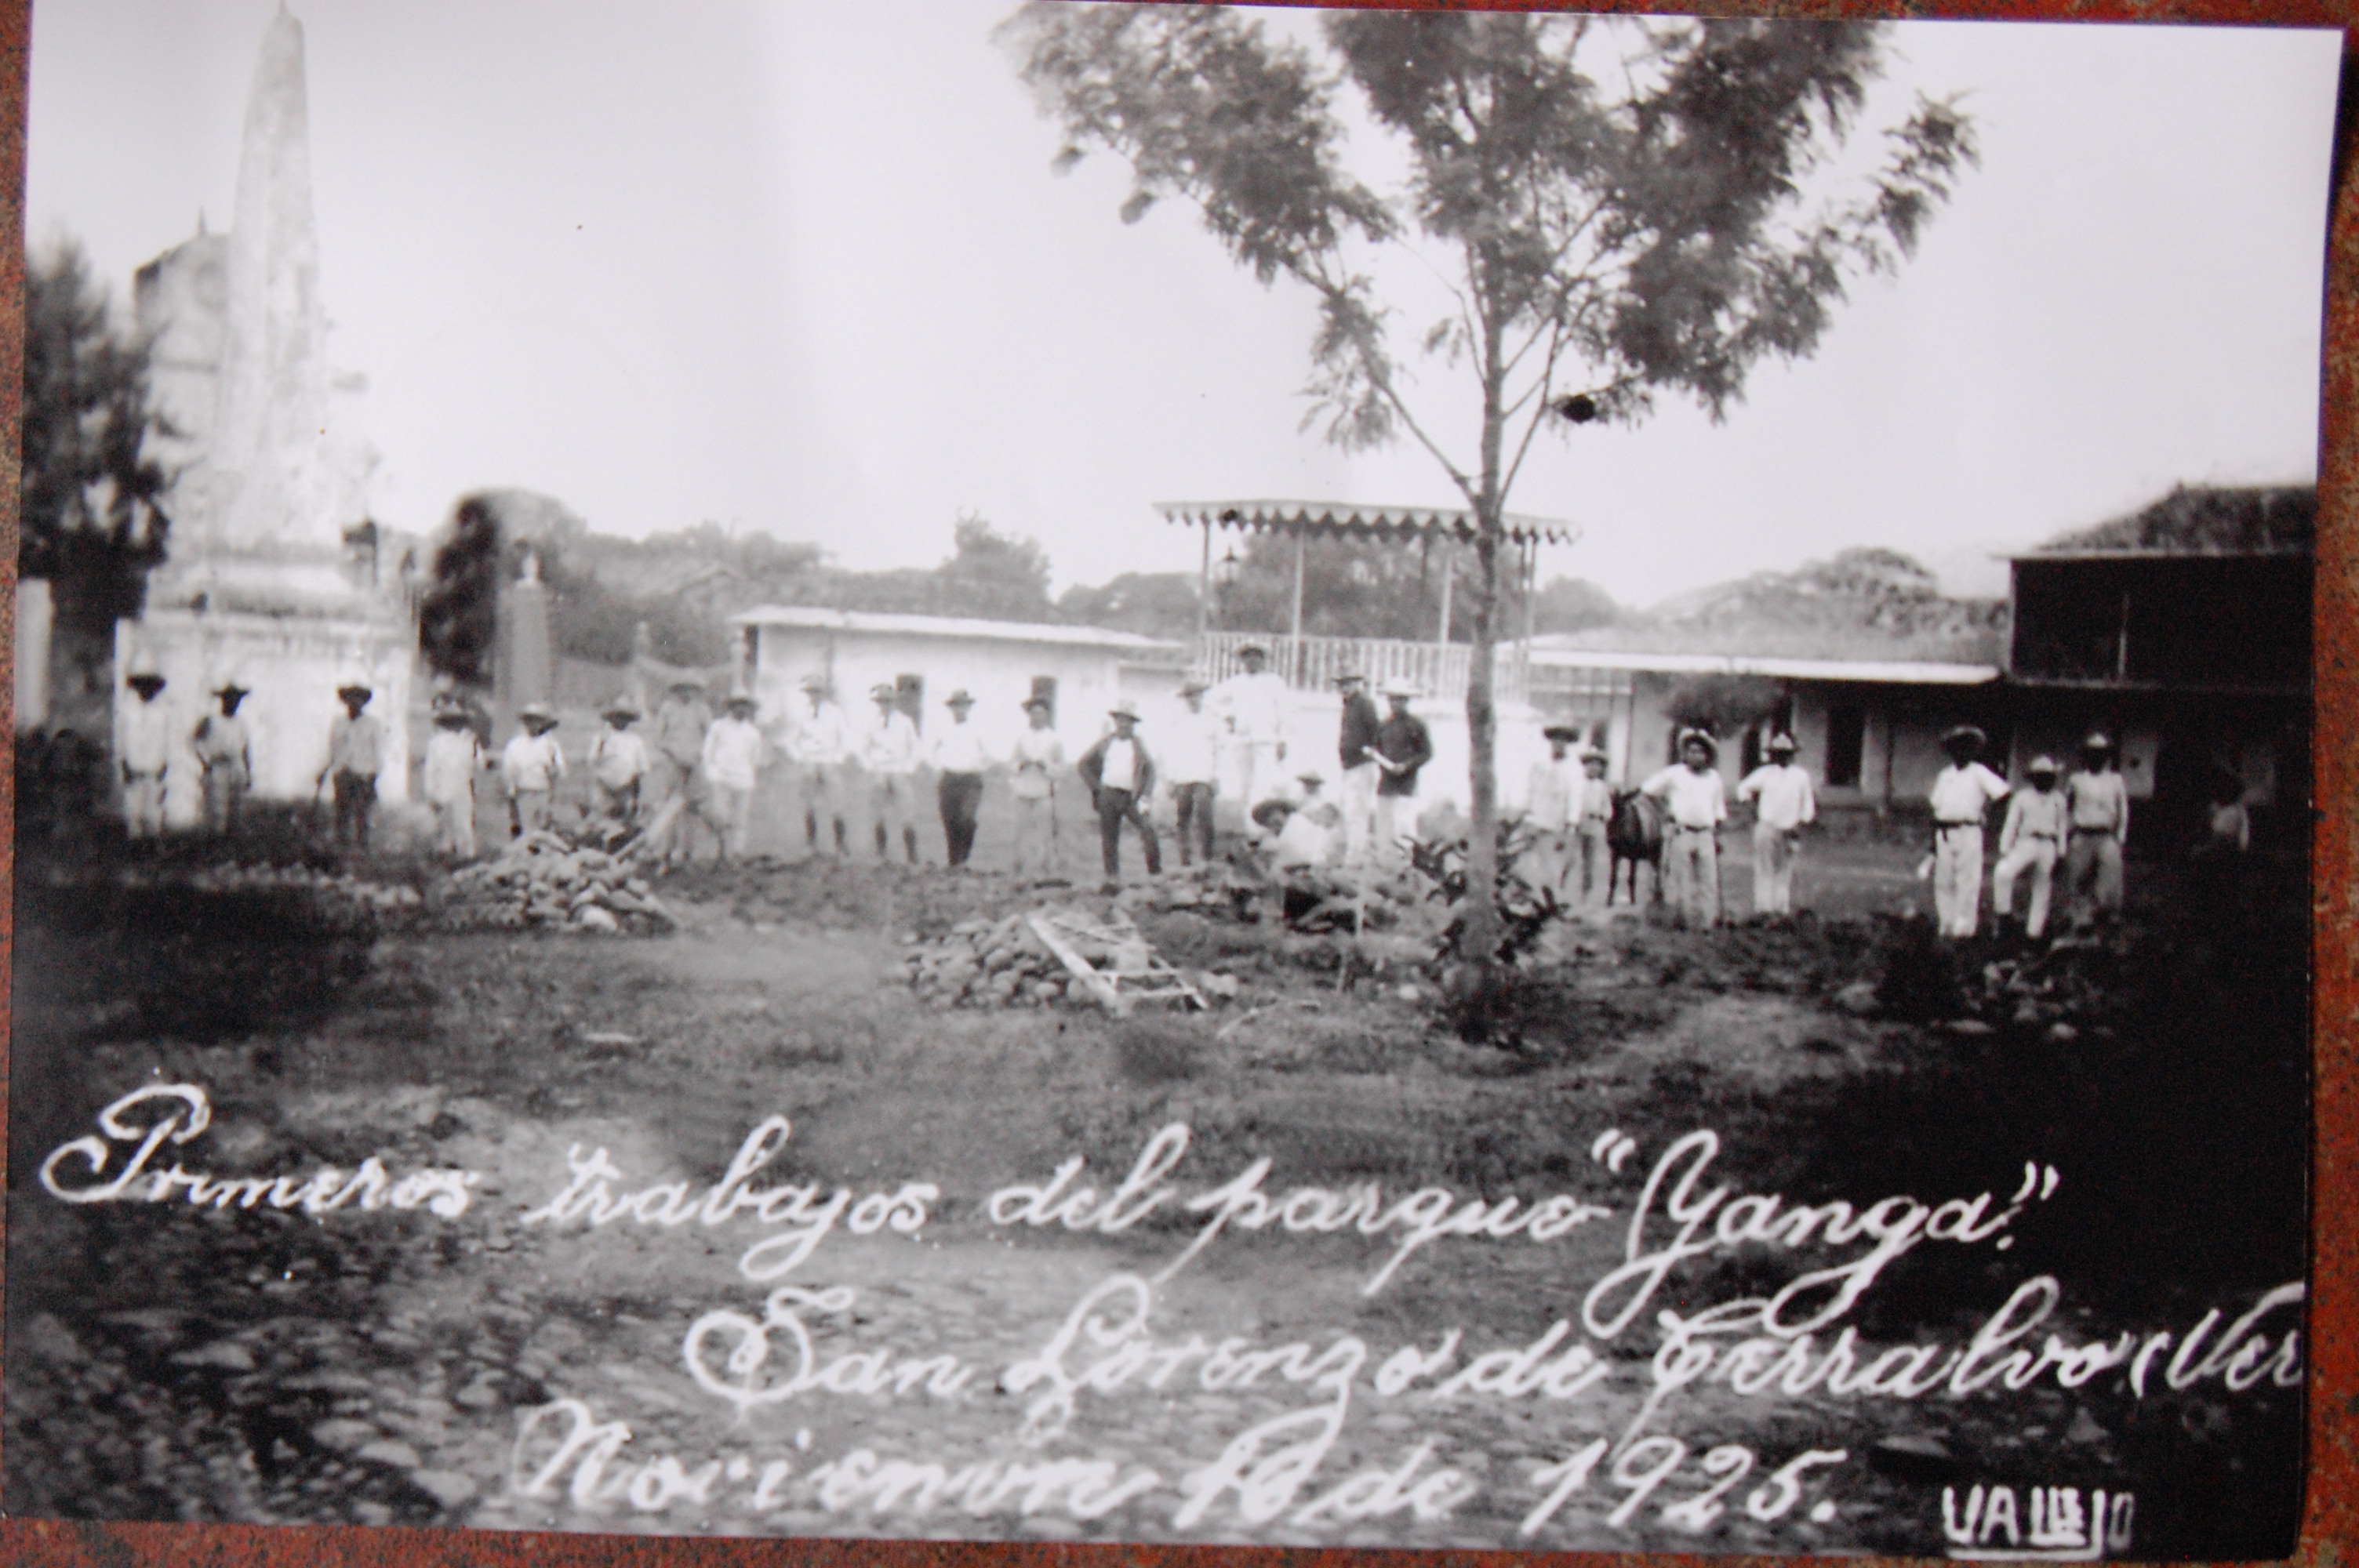 Primeros trabajos del parque "Yanga."
San Lorenzo de Cerralvo (Ver
Noviembre de 1925.
VALLEJO